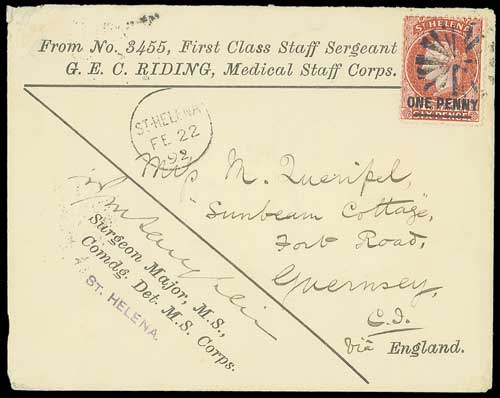 From No. 3455, First Class Staff Sergeant
G. E. C. RIDING, Medical Staff Corps.
ST HELENA
ONE PENNY
SIX PENCE
ST. HELENA
FE 22
92
Miss M. Queripel,
"Sunbeam Cottage",
Fort Road,
Guernsey,
C.I.
Viâ England.
Surgeon Major, M.S.,
Comdg. Det. M.S. Corps.
ST. HELENA.